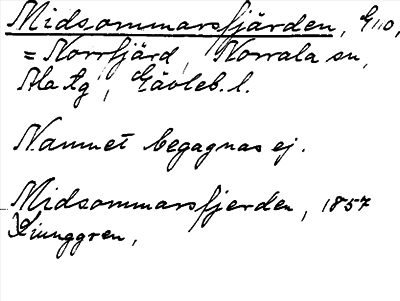 Midsommarsfjärden, G110,
= Norrfjärd, Norrala sn,
Ala tg, Gävleb. l.
Namnet begagnas ej.
Midsommarsfjerden, 1857
Ljunggren,